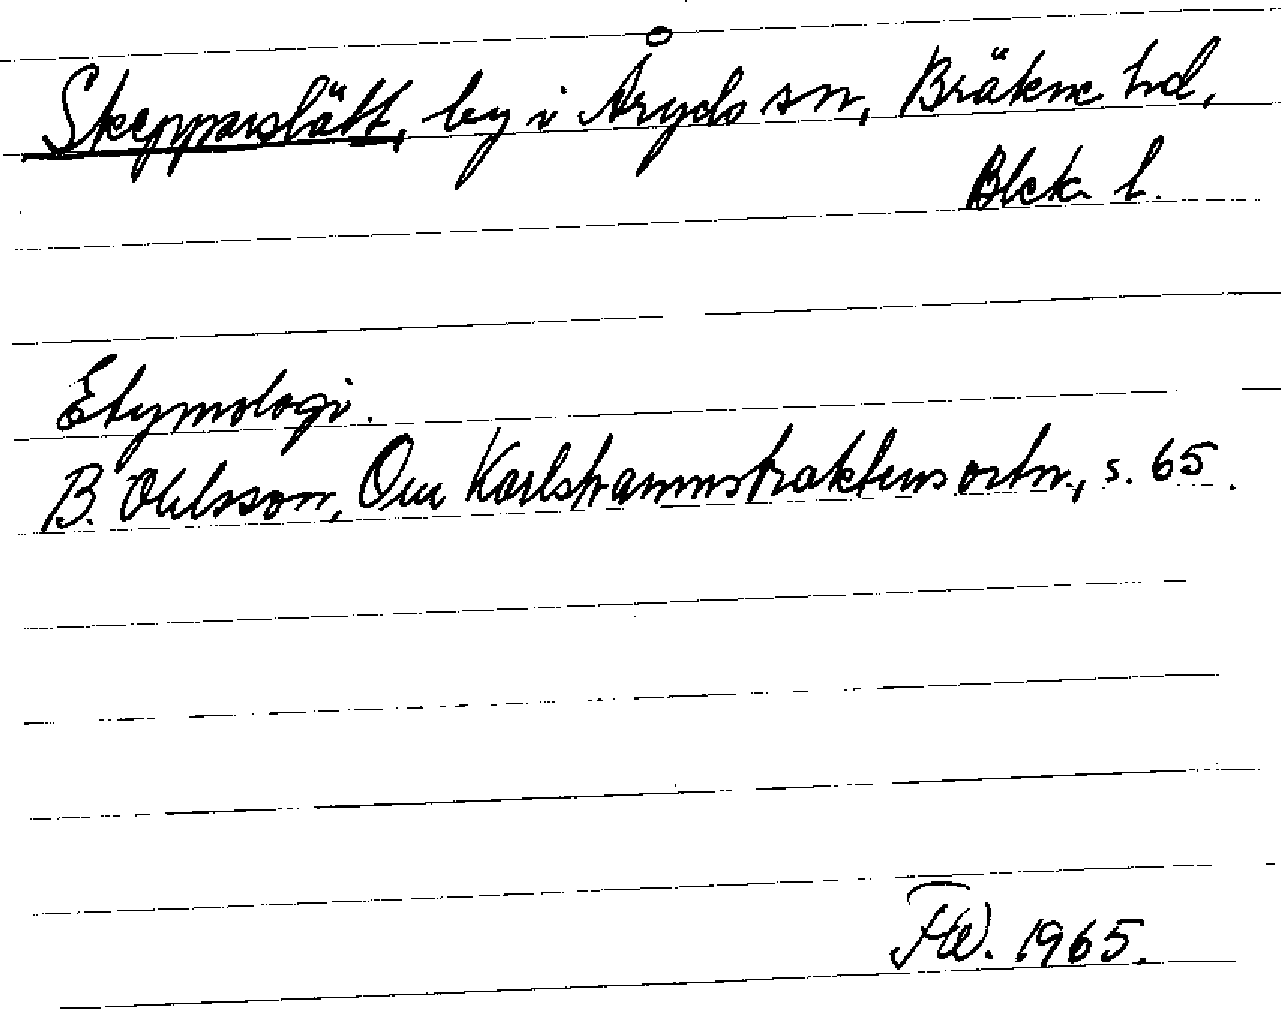 Skepparslätt, by i Åryds sn, Bräkne hd,
Blek. l.
Etymologi.
B. Ohlsson, Om Karlshamnstraktens ortn., s. 65.
FW. 1965.